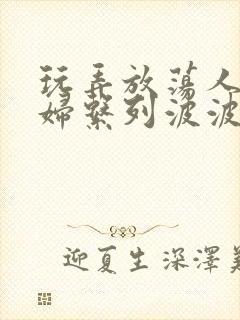 玩弄放荡人
婦繫列波波
迎夏生深澤